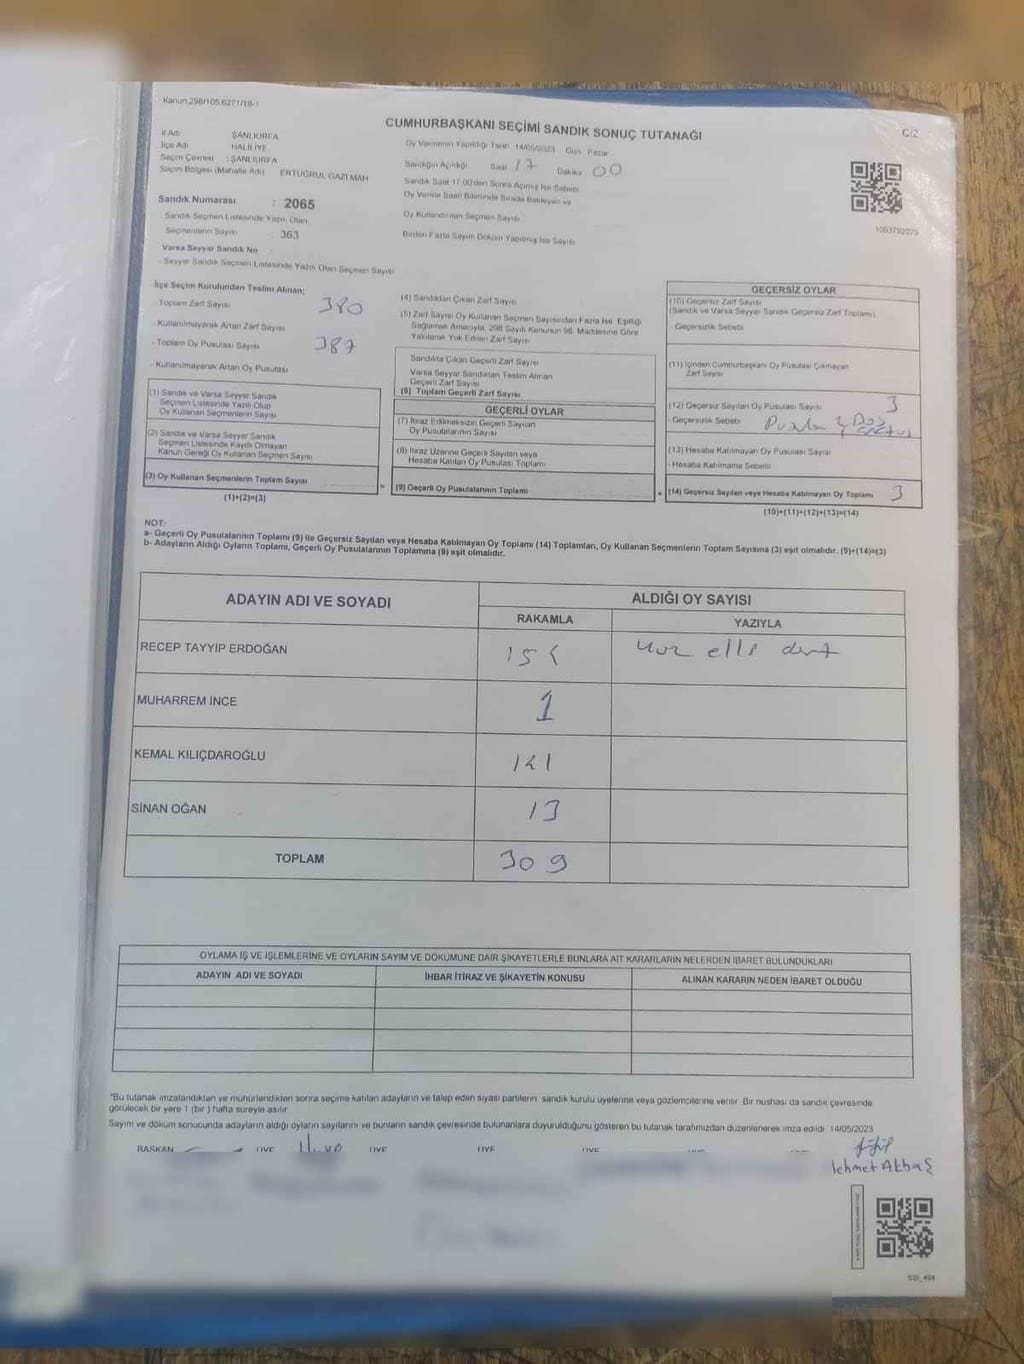 Kanun:298/105,6271/18-1
CUMHURBAŞKANI SEÇİMİ SANDIK SONUÇ TUTANAĞI
C/2
İl Adı ŞANLIURFA
İlçe Adı HALİLİYE
Seçim Çevresi : ŞANLIURFA
Seçim Bölgesi (Mahalle Adı) ERTUĞRUL GAZİ MAH
Sandık Numarası : 2065
Sandık Seçmen Listesinde Yazılı Olan
Seçmenlerin Sayısı : 363
Varsa Seyyar Sandık No :
- Seyyar Sandık Seçmen Listesinde Yazılı Olan Seçmen Sayısı
Oy Vermenin Yapıldığı Tarih 14/05/2023 Gün Pazar
Sandığın Açıldığı Saat 17 Dakika 00
Sandık Saat 17.00'den Sonra Açılmış İse Sebebi
Oy Verme Saati Bitiminde Sırada Bekleyen ve
Oy Kullandırılan Seçmen Sayısı
Birden Fazla Sayım Döküm Yapılmış İse Sayısı
1093792079
İlçe Seçim Kurulundan Teslim Alınan;
- Toplam Zarf Sayısı 380
- Kullanılmayarak Artan Zarf Sayısı
- Toplam Oy Pusulası Sayısı 387
- Kullanılmayarak Artan Oy Pusulası
(1) Sandık ve Varsa Seyyar Sandık
Seçmen Listesinde Yazılı Olup
Oy Kullanan Seçmenlerin Sayısı
(2) Sandık ve Varsa Seyyar Sandık
Seçmen Listesinde Kayıtlı Olmayan
Kanun Gereği Oy Kullanan Seçmen Sayısı
(3) Oy Kullanan Seçmenlerin Toplam Sayısı
(1)+(2)=(3)
(4) Sandıktan Çıkan Zarf Sayısı
(5) Zarf Sayısı Oy Kullanan Seçmen Sayısından Fazla İse, Eşitliği
Sağlamak Amacıyla, 298 Sayılı Kanunun 98. Maddesine Göre
Yakılarak Yok Edilen Zarf Sayısı
Sandıkta Çıkan Geçerli Zarf Sayısı
Varsa Seyyar Sandıktan Teslim Alınan
Geçerli Zarf Sayısı
(6) Toplam Geçerli Zarf Sayısı
GEÇERLİ OYLAR
(7) İtiraz Edilmeksizin Geçerli Sayılan
Oy Pusulalarının Sayısı
(8) İtiraz Üzerine Geçerli Sayılan veya
Hesaba Katılan Oy Pusulası Toplamı
= (9) Geçerli Oy Pusulalarının Toplamı
GEÇERSİZ OYLAR
(10) Geçersiz Zarf Sayısı
(Sandık ve Varsa Seyyar Sandık Geçersiz Zarf Toplamı)
- Geçersizlik Sebebi
(11) İçinden Cumhurbaşkanı Oy Pusulası Çıkmayan
Zarf Sayısı
(12) Geçersiz Sayılan Oy Pusulası Sayısı 3
- Geçersizlik Sebebi
(13) Hesaba Katılmayan Oy Pusulası Sayısı
- Hesaba Katılmama Sebebi
+ (14) Geçersiz Sayılan veya Hesaba Katılmayan Oy Toplamı 3
(10)+(11)+(12)+(13)=(14)
NOT:
a- Geçerli Oy Pusulalarının Toplamı (9) ile Geçersiz Sayılan veya Hesaba Katılmayan Oy Toplamı (14) Toplamları, Oy Kullanan Seçmenlerin Toplam Sayısına (3) eşit olmalıdır. (9)+(14)=(3)
b- Adayların Aldığı Oyların Toplamı, Geçerli Oy Pusulalarının Toplamına (9) eşit olmalıdır.
ADAYIN ADI VE SOYADI ALDIĞI OY SAYISI
RAKAMLA YAZIYLA
RECEP TAYYIP ERDOĞAN 154 yüz elli dört
MUHARREM İNCE 1
KEMAL KILIÇDAROĞLU 141
SİNAN OĞAN 13
TOPLAM 309
OYLAMA İŞ VE İŞLEMLERİNE VE OYLARIN SAYIM VE DÖKÜMÜNE DAİR ŞİKAYETLERLE BUNLARA AİT KARARLARIN NELERDEN İBARET BULUNDUKLARI
ADAYIN ADI VE SOYADI İHBAR İTİRAZ VE ŞİKAYETİN KONUSU ALINAN KARARIN NEDEN İBARET OLDUĞU
*Bu tutanak imzalandıktan ve mühürlendikten sonra seçime katılan adayların ve talep eden siyasi partilerin sandık kurulu üyelerine veya gözlemcilerine verilir. Bir nüshası da sandık çevresinde
görülecek bir yere 1 (bir) hafta süreyle asılır.
Sayım ve döküm sonucunda adayların aldığı oyların sayılarını ve bunların sandık çevresinde bulunanlara duyurulduğunu gösteren bu tutanak tarafımızdan düzenlenerek imza edildi. 14/05/2023
BAŞKAN ÜYE ÜYE ÜYE ÜYE
Mehmet Akbaş